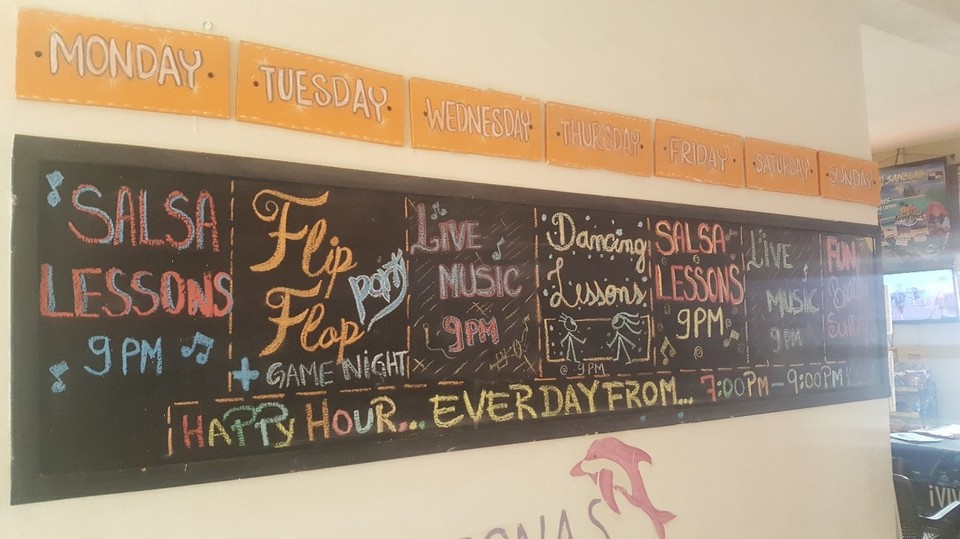 MONDAY
TUESDAY
WEDNESDAY
THURSDAY
FRIDAY
SATURDAY
SUNDAY
SALSA
LESSONS
9PM
Flip
Flop
party
+ GAME NIGHT
LIVE
MUSIC
9PM
Dancing
Lessons
@ 9PM
SALSA
LESSONS
9PM
LIVE
MUSIC
9PM
FUN
Sunday
HAPPY HOUR... EVERDAY FROM... 7:00PM - 9:00PM